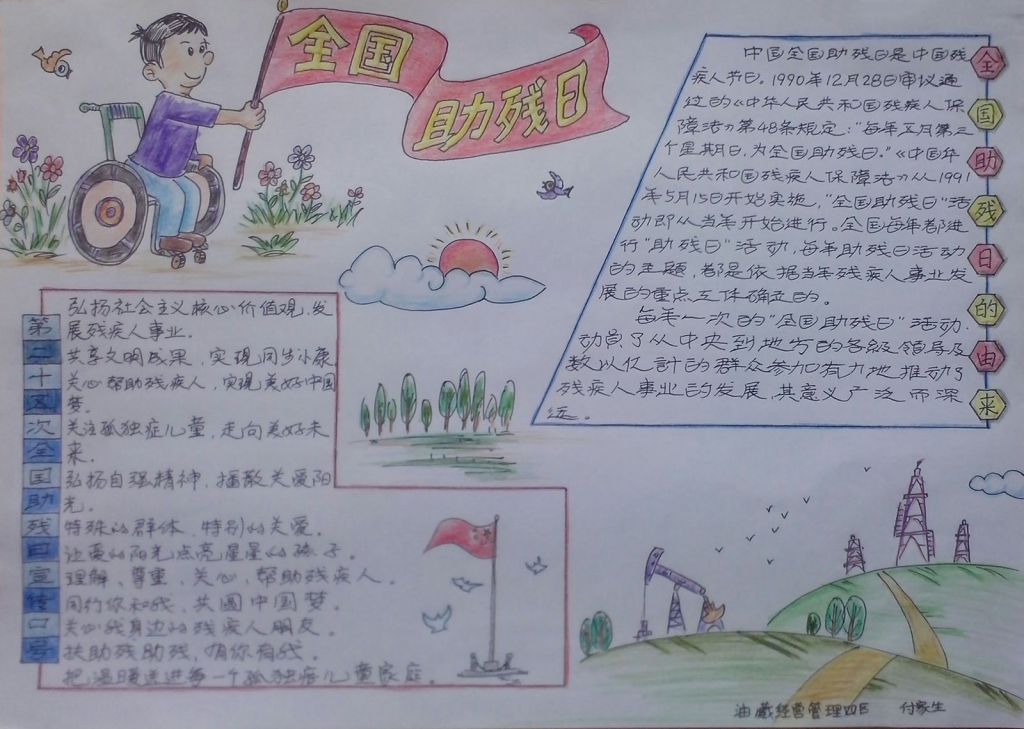 全国
助残日
全国助残日的由来
中国全国助残日是中国残
疾人节日。1990年12月28日审议通
过的《中华人民共和国残疾人保
障法》第48条规定："每年五月第三
个星期日,为全国助残日。"《中国华
人民共和国残疾人保障法》从1991
年5月15日开始实施,"全国助残日"活
动即从当年开始进行。全国每年都进
行"助残日"活动,每年助残日活动
的主题,都是依据当年残疾人事业发
展的重点工作确立的。
每年一次的"全国助残日"活动,
动员了从中央到地方的各级领导及
数以亿計的群众参加有力地推动了
残疾人事业的发展,其意义广泛而深
远。
第二十五次全国助残日宣传口号
弘扬社会主义核心价值观,发
展残疾人事业。
共享文明成果,实现同步小康
关心帮助残疾人,实现美好中国
梦。
关注孤独症儿童,走向美好未
来。
弘扬自强精神,播散关爱阳
光。
特殊的群体,特别的关爱。
让爱的阳光点亮星星的孩子。
理解、尊重、关心、帮助残疾人。
同行你和我,共圆中国梦。
关心我身边的残疾人朋友。
扶助残助残,有你有我。
把温暖送进每一个孤独症儿童家庭。
油藏经营管理四区 付家生